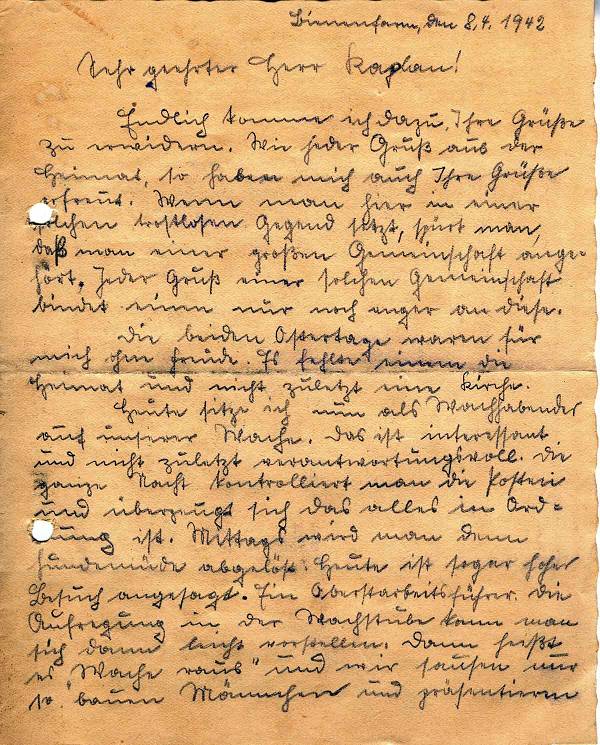 Bienenfarm, den 8.4. 1942
Sehr geehrter Herr Kaplan!
Endlich komme ich dazu, Ihre Grüße
zu erwidern. Wie jeder Gruß aus der
Heimat, so haben mich auch Ihre Grüße
erfreut. Wenn man hier in einer
solchen trostlosen Gegend sitzt, spürt man,
daß man einer großen Gemeinschaft ange-
hört. Jeder Gruß einer solchen Gemeinschaft
bindet einen nur noch enger an diese.
Die beiden Ostertage waren für
mich ohne Freude. Es fehlte einem die
Heimat und nicht zuletzt eine Kirche.
Heute sitze ich nun als Wachhabender
auf unserer Wache. Das ist interessant
und nicht zuletzt verantwortungsvoll. Die
ganze Nacht kontrolliert man die Posten
und überzeugt sich das alles in Ord-
nung ist. Mittags wird man denn
hundemüde abgelöst. Heute ist sogar hoher
Besuch angesagt. Ein Oberstarbeitsführer. Die
Aufregung in der Wachstube kann man
sich dann leicht vorstellen. Dann heißt
es "Wache raus" und wir sausen nur
so, bauen Männchen und präsentieren